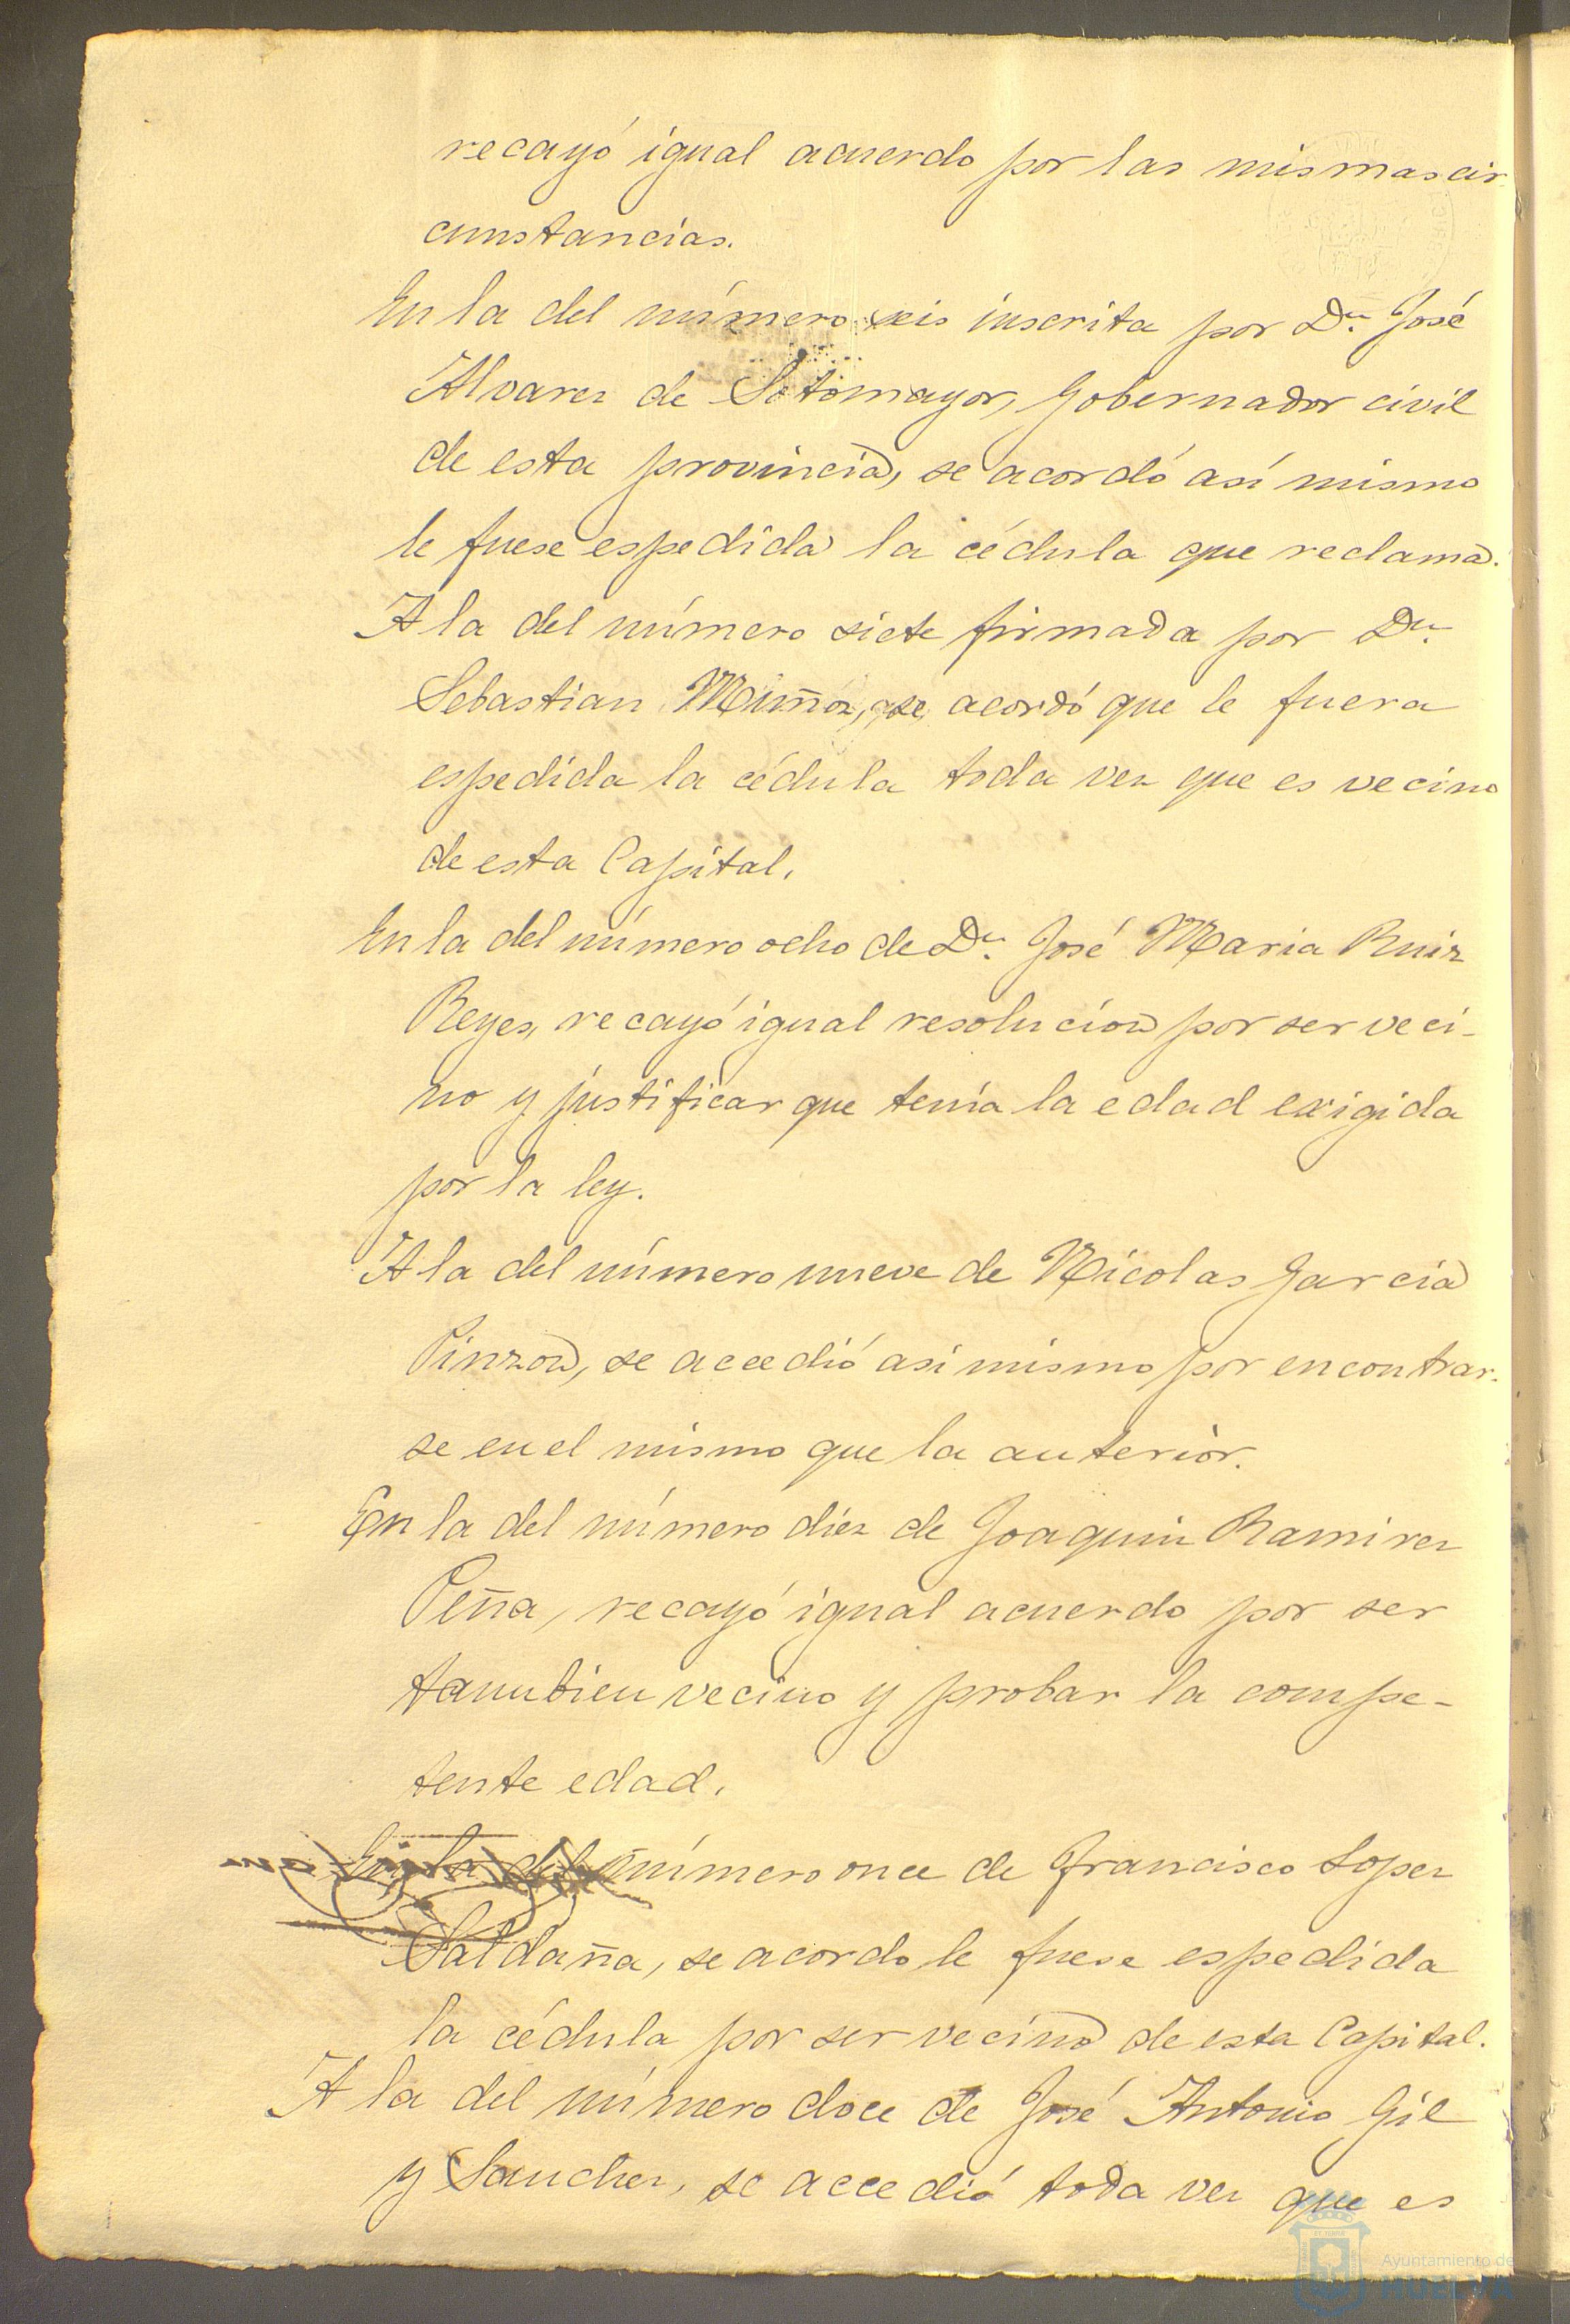 recayó igual acuerdo por las mismas cir-
cunstancias.
En la del número seis inscrita por Dn. José
Alvarez de Sotomayor, Gobernador civil
de esta provincia, se acordó así mismo
le fuese espedida la cédula que reclama.
A la del número siete firmada por Dn.
Sebastian Muñoz, se acordó que le fuera
espedida la cédula toda vez que es vecino
de esta Capital.
En la del número ocho de Dn. José Maria Ruiz
Reyes, recayó igual resolucion por ser veci-
no y justificar que tenía la edad exigida
por la ley.
A la del número nueve de Nicolas Garcia
Pinzon, se accedió así mismo por encontrar-
se en el mismo que la anterior.
En la del número diez de Joaquin Ramirez
Peña, recayó igual acuerdo por ser
tambien vecino y probar la compe-
tente edad.
En la del número once de Francisco Lopez
Saldaña, se acordo le fuese espedida
la cédula por ser vecino de esta Capital.
A la del número doce de José Antonio Gil
y Sanchez, se accedió toda vez que es
Ayuntamiento de
HUELVA